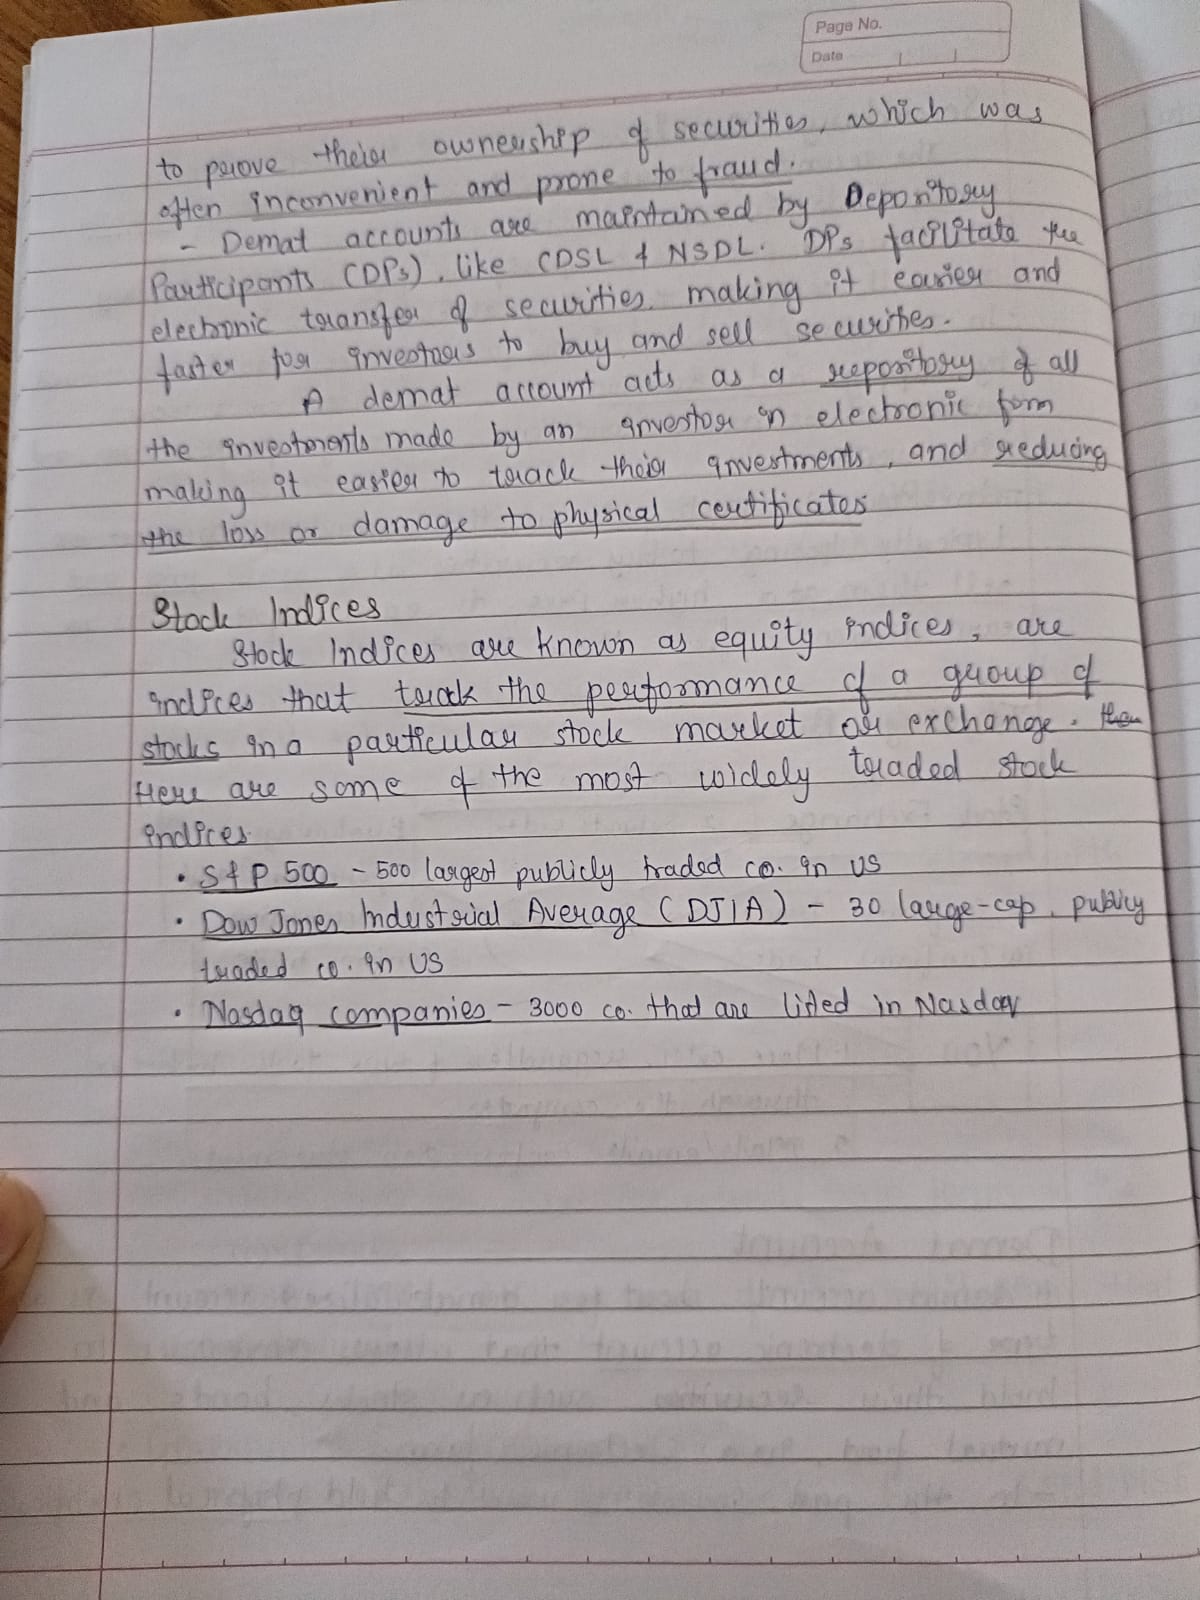 Page No.
Date
to prove their ownership of securities, which was
often inconvenient and prone to fraud.
- Demat accounts are maintained by Depository
Participants (DPs), like CDSL & NSDL. DPs facilitate the
electronic transfer of securities, making it easier and
faster for investors to buy and sell securities.
A demat account acts as a repository of all
the investments made by an investor in electronic form
making it easier to track their investments, and reducing
the loss or damage to physical certificates
Stock Indices
Stock Indices are known as equity indices, are
indices that track the performance of a group of
stocks in a particular stock market or exchange.
Here are some of the most widely traded stock
indices.
• S&P 500 - 500 largest publicly traded co. in US
• Dow Jones Industrial Average (DJIA) - 30 large-cap, publicy
traded co. in US
• Nasdaq companies - 3000 co. that are listed in Nasdaq